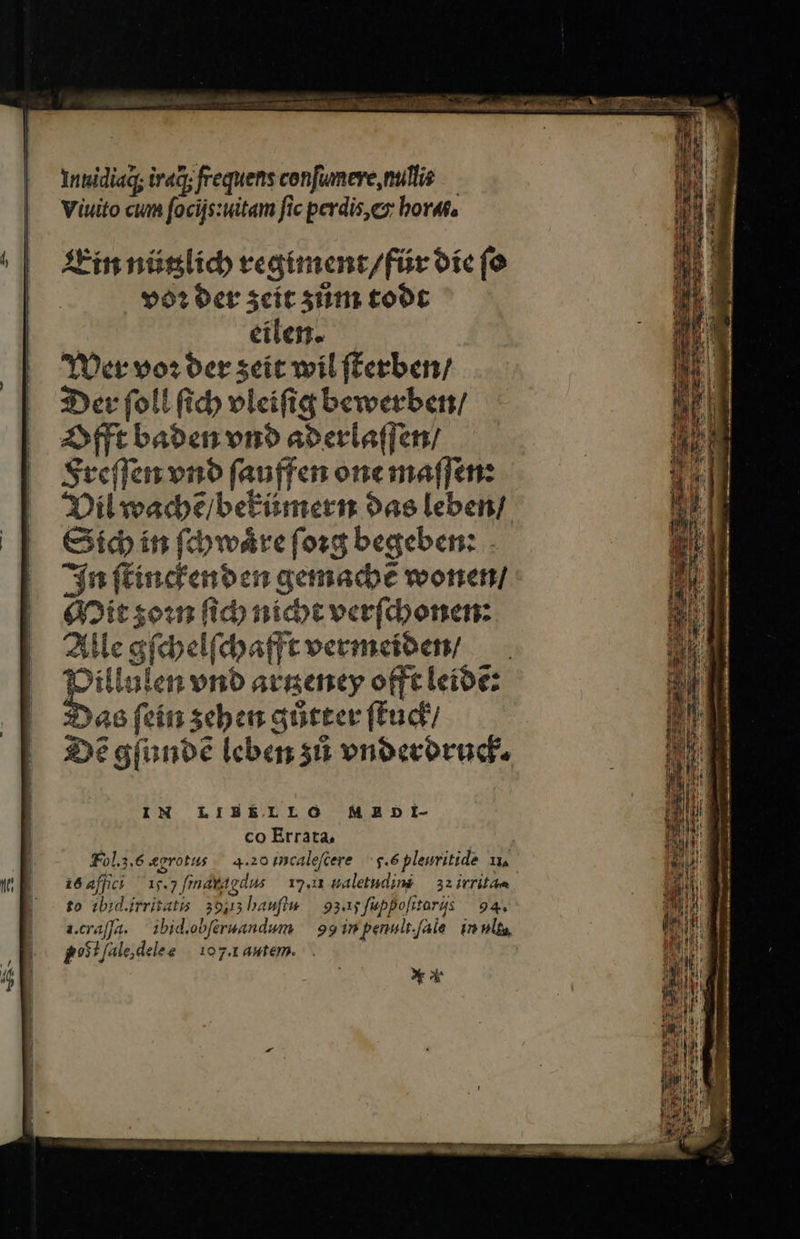 Inuidiaq́; iraq́; frequens conſumere, nullis
Viuito cum ſocijs: uitam ſic perdis, & horas.
Ein nützlich regiment / für die ſo
vor der zeit zům todt
eilen.
Wer vor der zeit wil ſterben /
Der ſoll ſich vleiſig bewerben /
Offt baden vnd aderlaſſen /
Freſſen vnd ſauffen one maſſen:
Vil wachē / bekümern das leben /
Sich in ſchwåre ſorg begeben:
In ſtinckenden gemachē wonen /
Mit zorn ſich nicht verſchonen:
Alle gſchelſchafft vermeiden /
Pillulen vnd artzeney offt leidē:
Das ſein zehen gůtter ſtuck /
Dē gſundē leben zů vnderdruck.
IN LIBELLO MEDI-
co Errata.
Fol. 3.6 ægrotus 4.20 incaleſcere 5.6 pleuritide 11.
16 affici 15.7 ſmaragdus 17.11 ualetudini 32 irrita-
to ibid. irritatis 39.13 hauſtu 93.15 ſuppoſitorijs 94.
1. craſſa. ibid. obſeruandum 99 in penult. ſale in ult.
poſt ſale, dele e 107.1 autem.
**